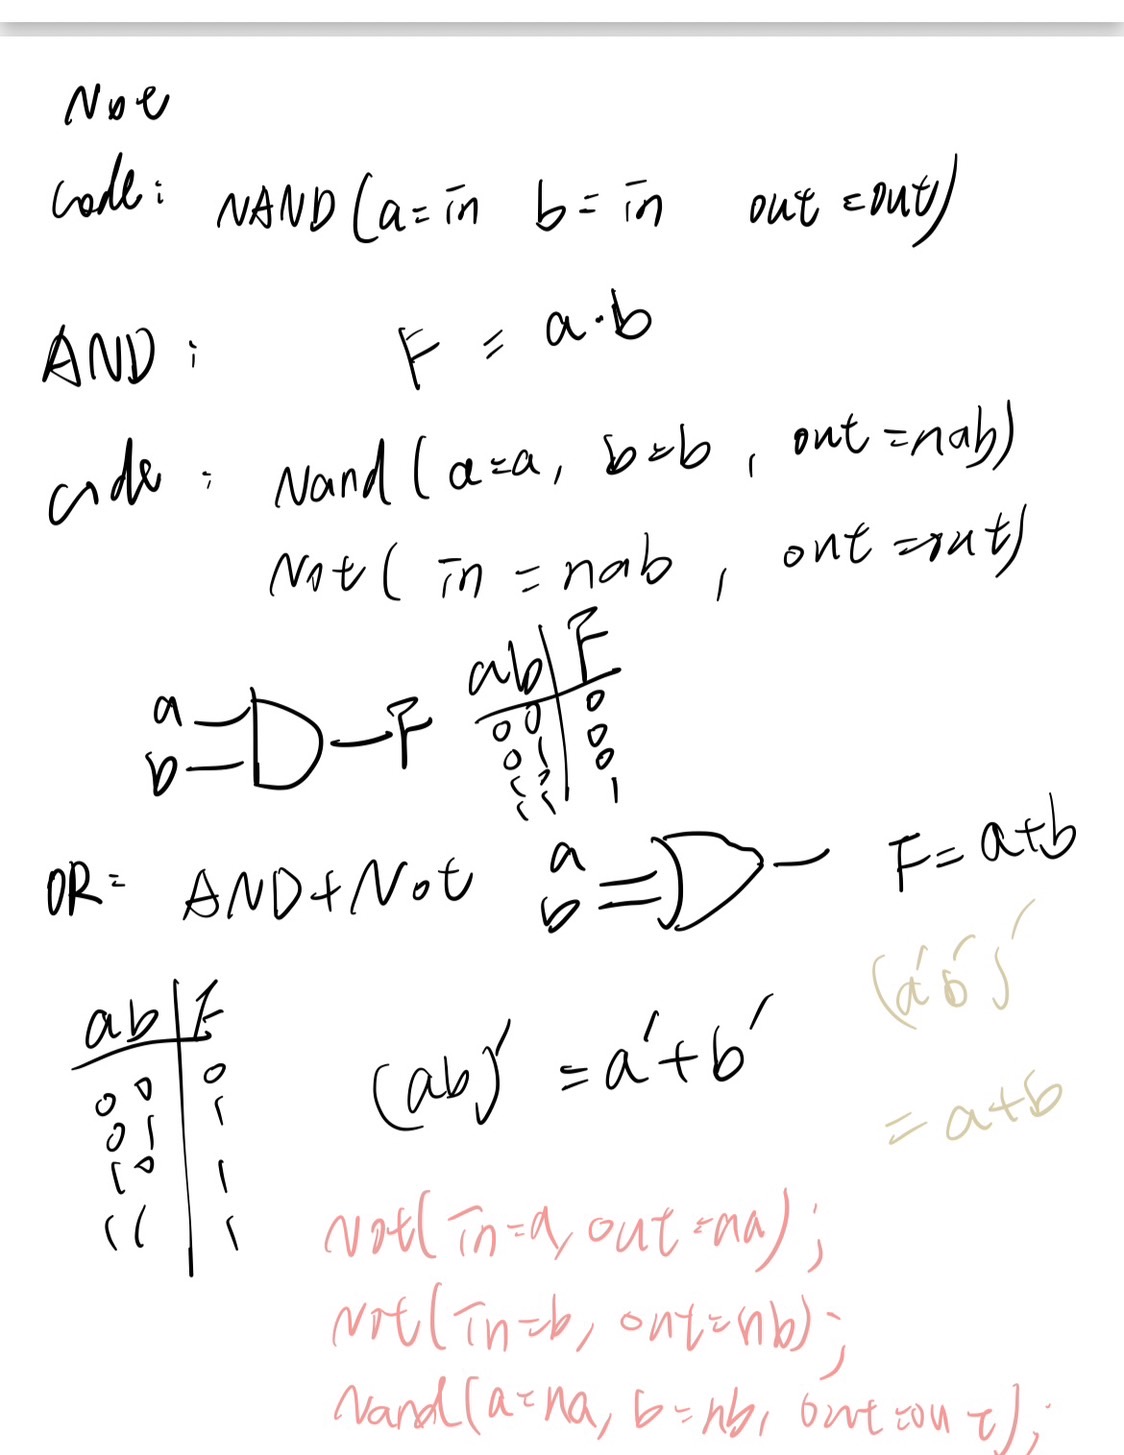 Not
code: NAND(a=in b=in out=out)
AND: F = a·b
code: Nand(a=a, b=b, out=nab)
Not(in=nab, out=out)
ab F
a 0 0 0
b F 0 1 0
1 0 0
1 1 1
OR= AND+Not a b F=a+b
(a'b')'
ab F
(ab)' = a'+b'
= a+b
0 0 0
0 1 1
1 0 1
1 1 1
Not(in=a, out=na);
Not(in=b, out=nb);
Nand(a=na, b=nb, out=out);